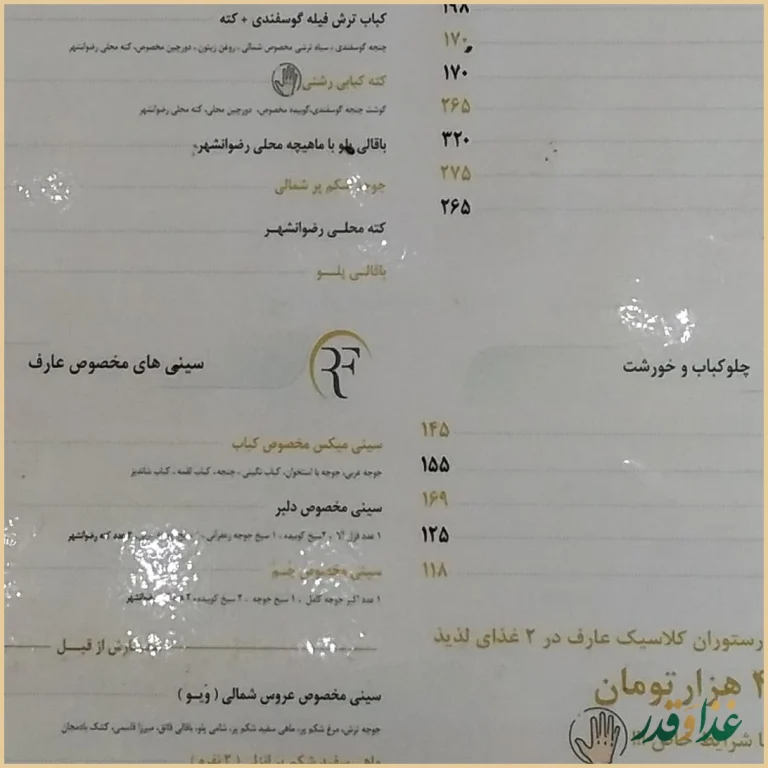 ۱۶۸
۱۷۰
۱۷۰
۲۶۵
۳۲۰
۲۷۵
۲۶۵
چلوکباب و خورشت
۱۴۵
۱۵۵
۱۶۹
۱۲۵
۱۱۸
رستوران کلاسیک عارف در ۲ غذای لذیذ
هزار تومان
غذا و قدر
کباب ترش فیله گوسفندی + کته
چنجه گوسفندی ، سیاه ترشی مخصوص شمالی ، روغن زیتون ، دورچین مخصوص، کته محلی رضوانشهر
کته کبابی رشتی
گوشت چنجه گوسفندی،کوبیده مخصوص، دورچین محلی، کته محلی رضوانشهر
باقالی پلو با ماهیچه محلی رضوانشهر
جوجه شکم پر شمالی
کته محلـی رضوانشهـر
باقالـی پلــو
سینی های مخصوص عارف
سینی میکس مخصوص کباب
جوجه غربی، جوجه با استخوان، کباب نگینی ، چنجه ، کباب لقمه ، کباب شاندیز
سینی مخصوص دلبر
۱ عدد قزل آلا ، ۲سیخ کوبیده ، ۱ سیخ جوجه زعفرانی ، کته رضوانشهر
سینی مخصوص
۱ عدد اکبر جوجه کامل ، ۱ سیخ جوجه ، ۲ سیخ کوبیده،
سفارش از قبـل
سینی مخصوص عروس شمالی ( ویـو )
جوجه ترش، مرغ شکم پر، ماهی سفید شکم پر، شامی پلو، باقالی قاتق، میرزا قاسمی، کشک بادمجان
ماهی سفید شکم پر انزلی ( ۳ نفره )